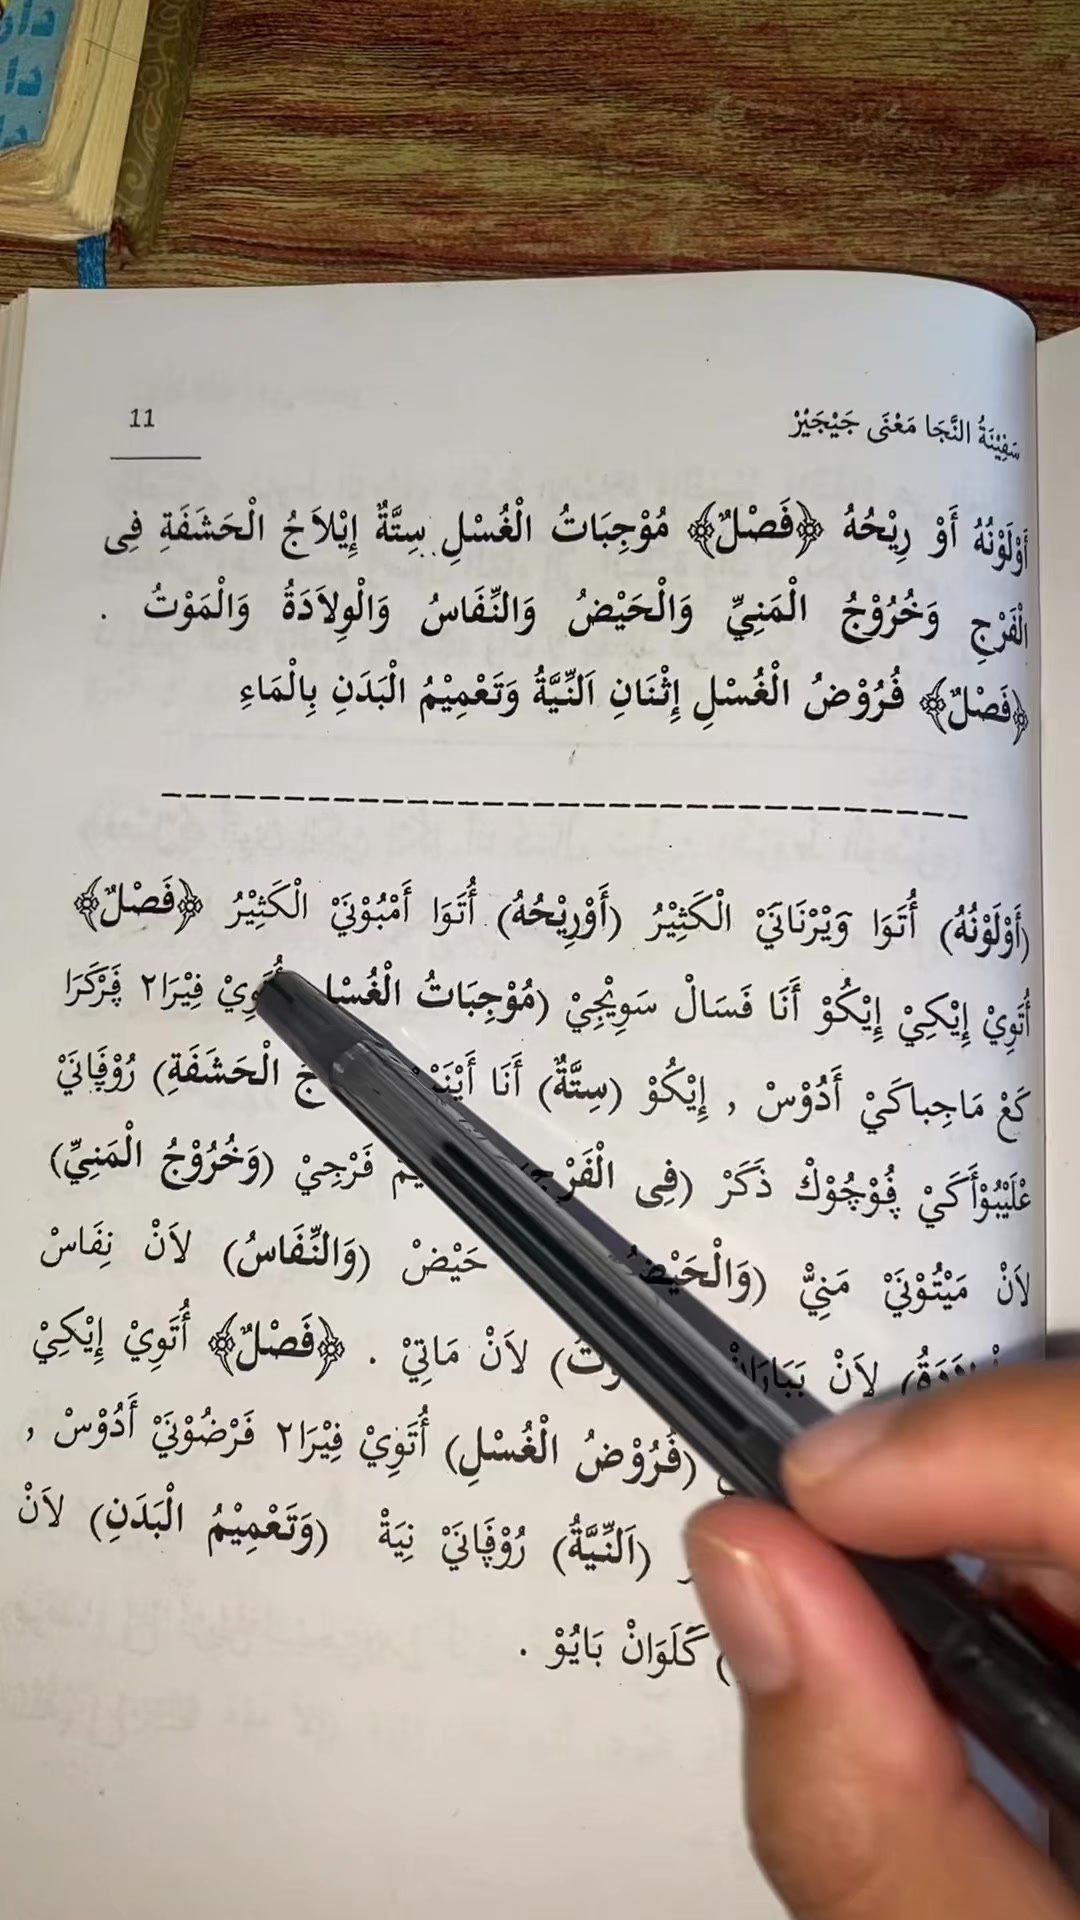 سَفِيْنَةُ النَّجَا مَعْنَى جَيْجَيْرْ
11
أَوْلَوْنُهُ أَوْ رِيْحُهُ ﴿فَصْلٌ﴾ مُوْجِبَاتُ الْغُسْلِ سِتَّةٌ إِيْلَاجُ الْحَشَفَةِ فِى
الْفَرْجِ وَخُرُوْجُ الْمَنِيِّ وَالْحَيْضُ وَالنِّفَاسُ وَالْوِلَادَةُ وَالْمَوْتُ .
﴿فَصْلٌ﴾ فُرُوْضُ الْغُسْلِ إِثْنَانِ اَلنِّيَّةُ وَتَعْمِيْمُ الْبَدَنِ بِالْمَاءِ
(أَوْلَوْنُهُ) أُتَوَا وَيْرْنَانَيْ الْكَثِيْرُ (أَوْرِيْحُهُ) أُتَوَا أَمْبُوْنَيْ الْكَثِيْرُ ﴿فَصْلٌ﴾
أُتَوِيْ إِيْكِيْ إِيْكُوْ أَنَا فَسَالْ سَوِيْجِيْ (مُوْجِبَاتُ الْغُسْلِ أُتَوِيْ فِيْرَا٢ فَرْكَرَا
كَعْ مَاجِباكَيْ أَدُوْسْ , إِيْكُوْ (سِتَّةٌ) أَنَا الْحَشَفَةِ) رُوْڤَانَيْ
عْلَيْبُوْأَكَيْ ڤُوْچُوْكْ ذَكَرْ (فِى الْفَرْجِ فَرْجِيْ (وَخُرُوْجُ الْمَنِيِّ)
لَانْ مَيْتُوْنَيْ مَنِيْ (وَالْحَيْضُ حَيْضْ (وَالنِّفَاسُ) لَانْ نِفَاسْ
لَانْ لَانْ مَاتِيْ . ﴿فَصْلٌ﴾ أُتَوِيْ إِيْكِيْ
(فُرُوْضُ الْغُسْلِ) أُتَوِيْ فِيْرَا٢ فَرْضُوْنَيْ أَدُوْسْ ,
(اَلنِّيَّةُ) رُوْڤَانَيْ نِيَةْ (وَتَعْمِيْمُ الْبَدَنِ) لَانْ
كَلَوَانْ بَايُوْ .